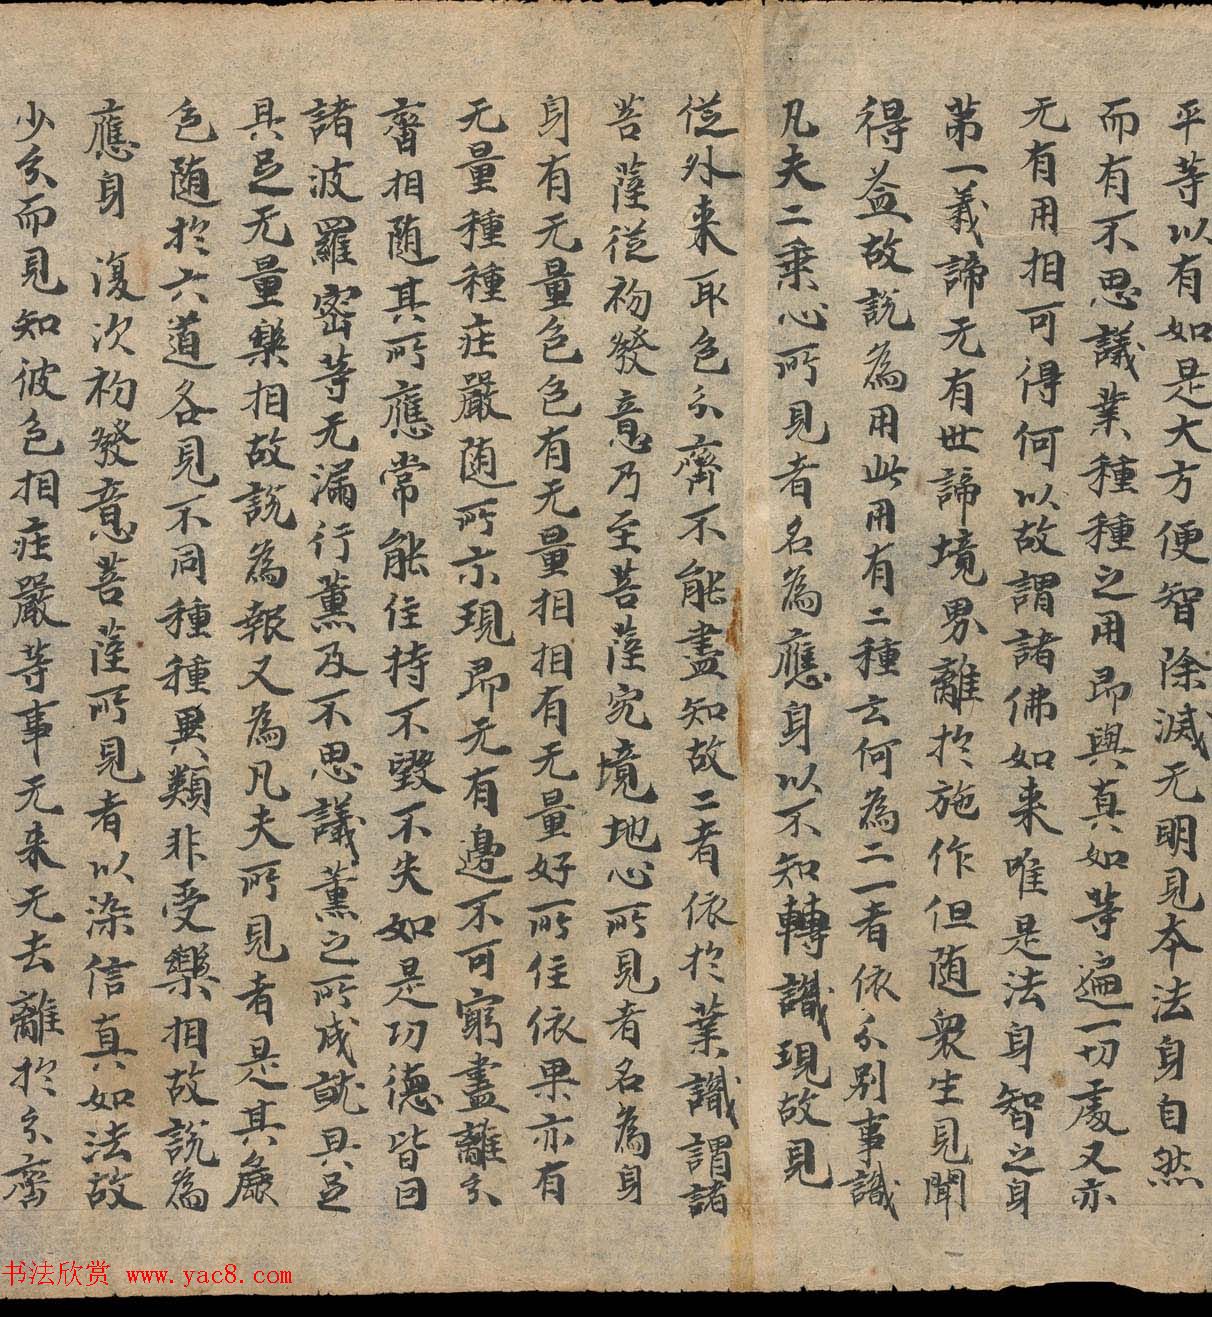 平等以有如是大方便智除滅无明見本法身自然
而有不思議業種種之用即與真如等遍一切處又亦
无有用相可得何以故謂諸佛如来唯是法身智之身
第一義諦无有世諦境界離於施作但随衆生見聞
得益故說為用此用有二種云何為二一者依分別事識
凡夫二乗心所見者名為應身以不知轉識現故見
従外来取色分齊不能盡知故二者依於業識謂諸
菩薩従初發意乃至菩薩究境地心所見者名為身
身有无量色色有无量相相有无量好所住依果亦有
无量種種庄嚴随所示現即无有邊不可窮盡離分
齊相随其所應常能住持不毀不失如是功德皆因
諸波羅密等无漏行薰及不思議薰之所成就具足
具足无量樂相故說為報又為凡夫所見者是其麁
色随於六道各見不同種種異類非受樂相故說為
應身 復次初發意菩薩所見者以染信真如法故
少分而見知彼色相庄嚴等事无来无去離於分齊
书法欣赏 www.yac8.com